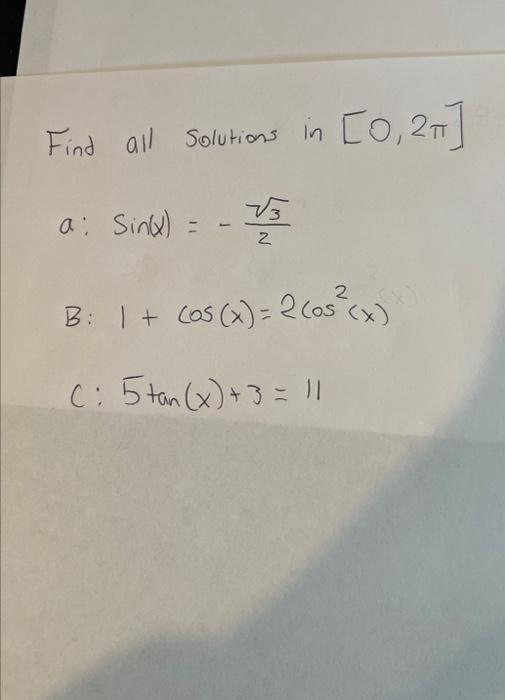 Find all Solutions in [0, 2π]
a: Sin(x) = - √3/2
B: 1 + cos(x) = 2cos²(x)
C: 5tan(x) + 3 = 11